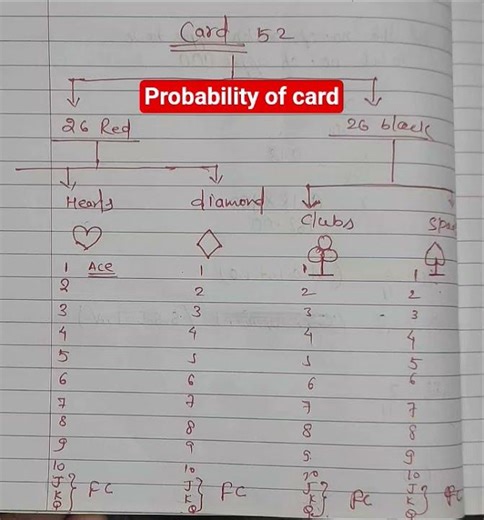 Card 52
Probability of card
26 Red 26 black
Hearts diamond Clubs
1 Ace 1 1 1
2 2 2 2
3 3 3 3
4 4 4 4
5 5 5 5
6 6 6 6
7 7 7 7
8 8 8 8
9 9 9 9
10 10 10 10
J J J J
K } FC K } FC K } FC K } FC
Q Q Q Q